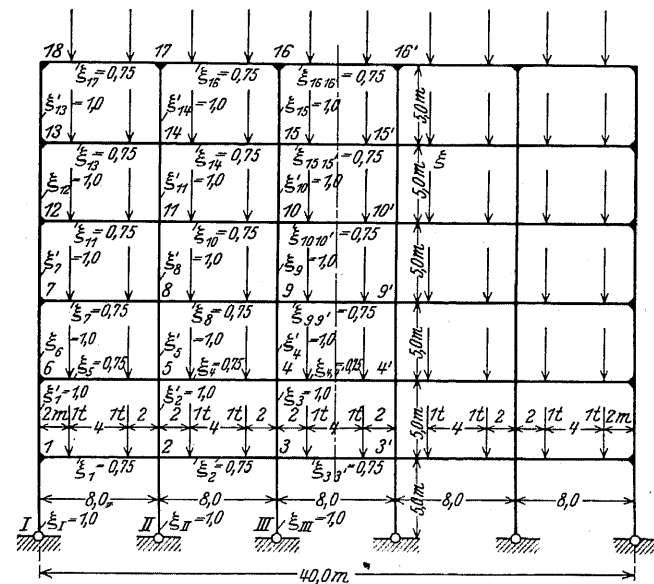 18 17 16 16'
'ξ₁₇=0,75 'ξ₁₆=0,75 'ξ₁₆ ₁₆'=0,75
ξ'₁₃=1,0 ξ'₁₄=1,0 ξ₁₅=1,0 5,0m
13 14 15 15'
'ξ₁₃=0,75 'ξ₁₄=0,75 'ξ₁₅ ₁₅'=0,75 ξ
ξ₁₂=1,0 ξ'₁₁=1,0 ξ'₁₀=1,0 5,0m
12 11 10 10'
'ξ₁₁=0,75 'ξ₁₀=0,75 ξ₁₀ ₁₀'=0,75
ξ'₇=1,0 ξ'₈=1,0 ξ₉=1,0 5,0m
7 8 9 9'
'ξ₇=0,75 'ξ₈=0,75 'ξ₉ ₉'=0,75
ξ₆=1,0 ξ'₅=1,0 ξ'₄=1,0 5,0m
6 ξ₅=0,75 5 ξ₄=0,75 4 4'
ξ'₁=1,0 ξ'₂=1,0 ξ₃=1,0
2m 1t 1t 2 2 1t 1t 2 2 1t 1t 2 1t 2 2 1t 1t 2m
4 4 4 4 4 5,0m
1 2 3 3'
'ξ₁=0,75 'ξ₂=0,75 'ξ₃ ₃'=0,75
8,0 8,0 8,0 8,0 8,0 5,0m
I ξ_I=1,0 II ξ_II=1,0 III ξ_III=1,0
40,0m